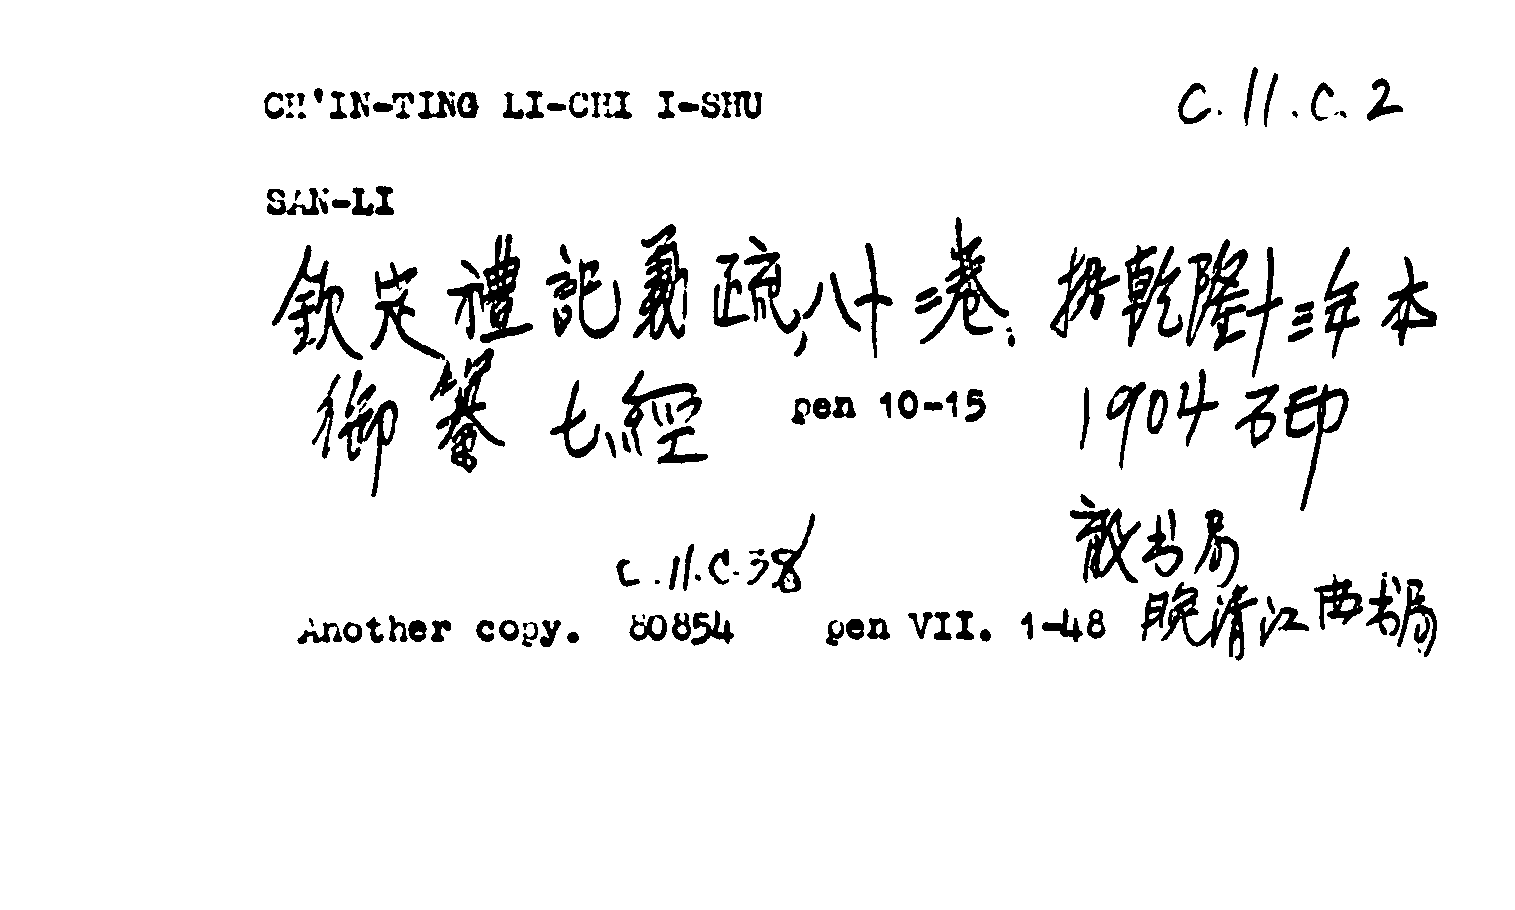 CH'IN-TING LI-CHI I-SHU C.11.C.2
SAN-LI
欽定禮記義疏,八十二卷. 據乾隆十三年本
御纂七經 pen 10-15 1904 石印
书局
C.11.C.38
Another copy. 80854 pen VII. 1-48 晚清江西书局